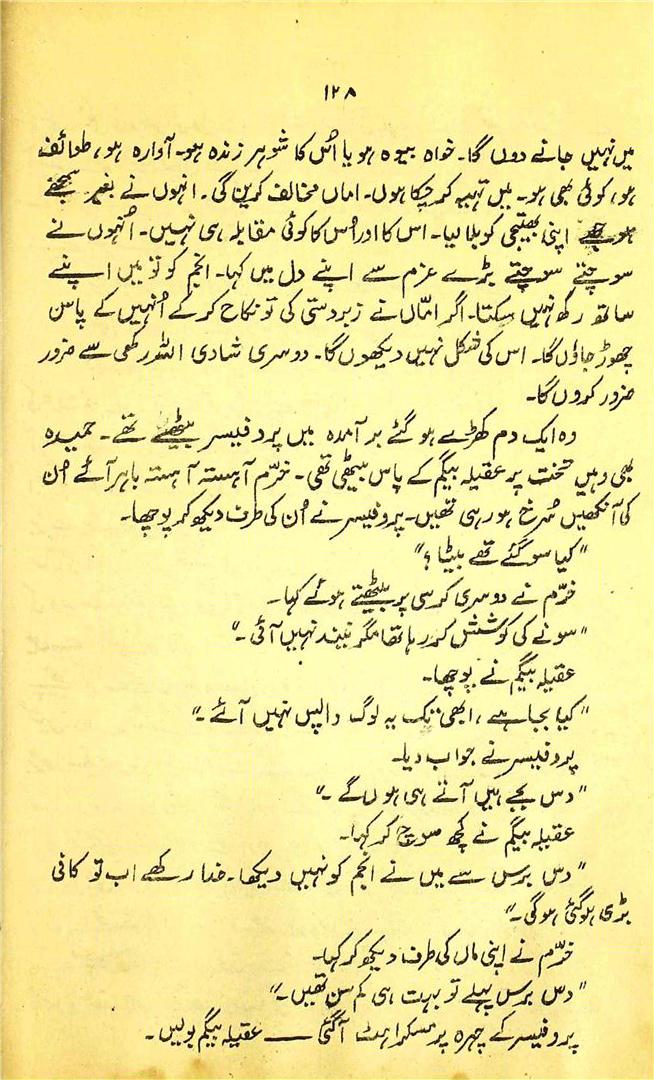 ۱۲۸
میں نہیں جانے دوں گا۔ خواہ بیوہ ہو یا اُس کا شوہر زندہ ہو۔ آوارہ ہو، طوائف
ہو، کوئی بھی ہو۔ میں تہیہ کر چکا ہوں۔ اماں مخالف کریں گی۔ انہوں نے بغیر سمجھے
سوچے اپنی بھتیجی کو بلا لیا۔ اس کا اور اُس کا کوئی مقابلہ ہی نہیں۔ اُنھوں نے
سوچتے سوچتے بڑے عزم سے اپنے دل میں کہا۔ انجم کو تو میں اپنے
ساتھ رکھ نہیں سکتا۔ اگر امّاں نے زبردستی کی تو نکاح کر کے اُنہیں کے پاس
چھوڑ جاؤں گا۔ اس کی شکل نہیں دیکھوں گا۔ دوسری شادی اللہ رکھی سے ضرور
ضرور کروں گا۔
وہ ایک دم کھڑے ہو گئے برآمدہ میں پروفیسر بیٹھے تھے۔ حمیدہ
بھی وہیں تخت پر عقیلہ بیگم کے پاس بیٹھی تھی۔ خرّم آہستہ آہستہ باہر آئے اُن
کی آنکھیں سُرخ ہو رہی تھیں۔ پروفیسر نے اُن کی طرف دیکھ کر پوچھا۔
"کیا سو گئے تھے بیٹا؟"
خرّم نے دوسری کرسی پر بیٹھتے ہوئے کہا۔
"سونے کی کوشش کر رہا تھا مگر نیند نہیں آئی۔"
عقیلہ بیگم نے پوچھا۔
"کیا بجا ہے، ابھی تک یہ لوگ واپس نہیں آئے۔"
پروفیسر نے جواب دیا۔
"دس بجے ہیں آتے ہی ہوں گے۔"
عقیلہ بیگم نے کچھ سوچ کر کہا۔
"دس برس سے میں نے انجم کو نہیں دیکھا۔ خدا رکھے اب تو کافی
بڑی ہو گئی ہو گی۔"
خرّم نے اپنی ماں کی طرف دیکھ کر کہا۔
"دس برس پہلے تو بہت ہی کم سن تھیں۔"
پروفیسر کے چہرہ پر مسکراہٹ آ گئی —— عقیلہ بیگم بولیں۔